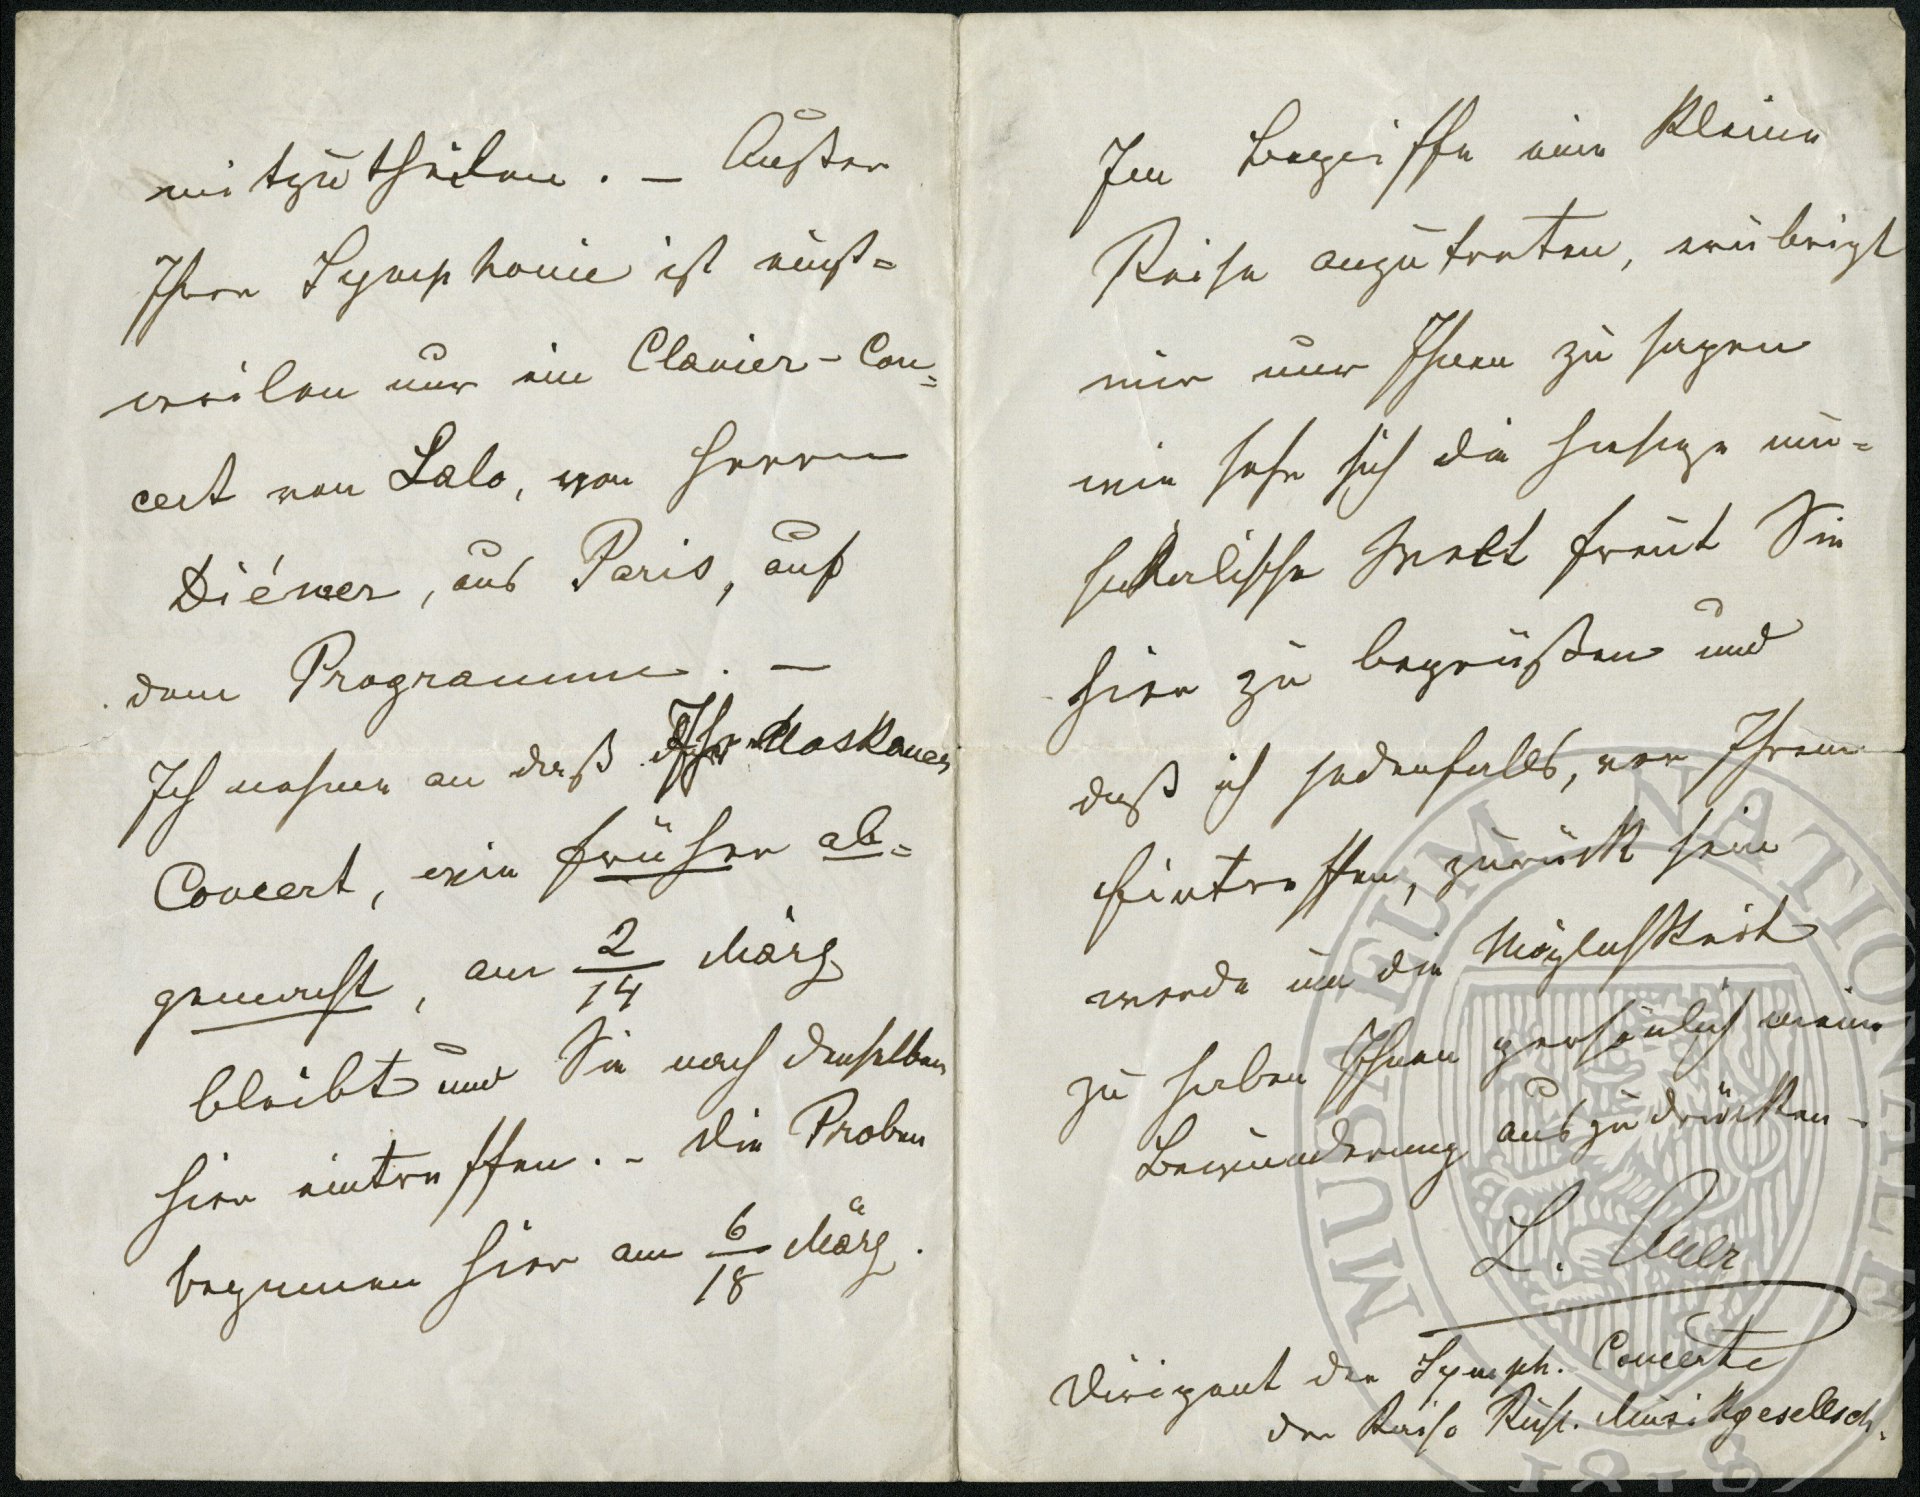 mitzutheilen. – Außer
Ihrer Symphonie ist einst=
weilen nur ein Clavier-Con=
cert von Lalo, von Herrn
Diémer, aus Paris, auf
dem Programme. –
Ich nehme an daß Ihr Moskauer
Concert, wie früher ab=
gemacht, am 2/14 März
bleibt und Sie nach denselben
hier eintreffen. – Die Proben
beginnen hier am 6/18 März.
Im Begriffe eine kleine
Reise anzutreten, erübrigt
mir nur Ihnen zu sagen
wie sehr sich die hiesige mu=
sikalische Welt freut Sie
hier zu begrüßen und
daß ich jedenfalls, vor Ihrem
Eintreffen, zurück sein
werde um die Möglichkeit
zu haben Ihnen persönlich meine
Bewunderung auszudrücken –
L. Auer
Dirigent der Symph. Concerte
der Kais. Russ. Musikgesellsch.
MUSAEUM NATIONALE
1818